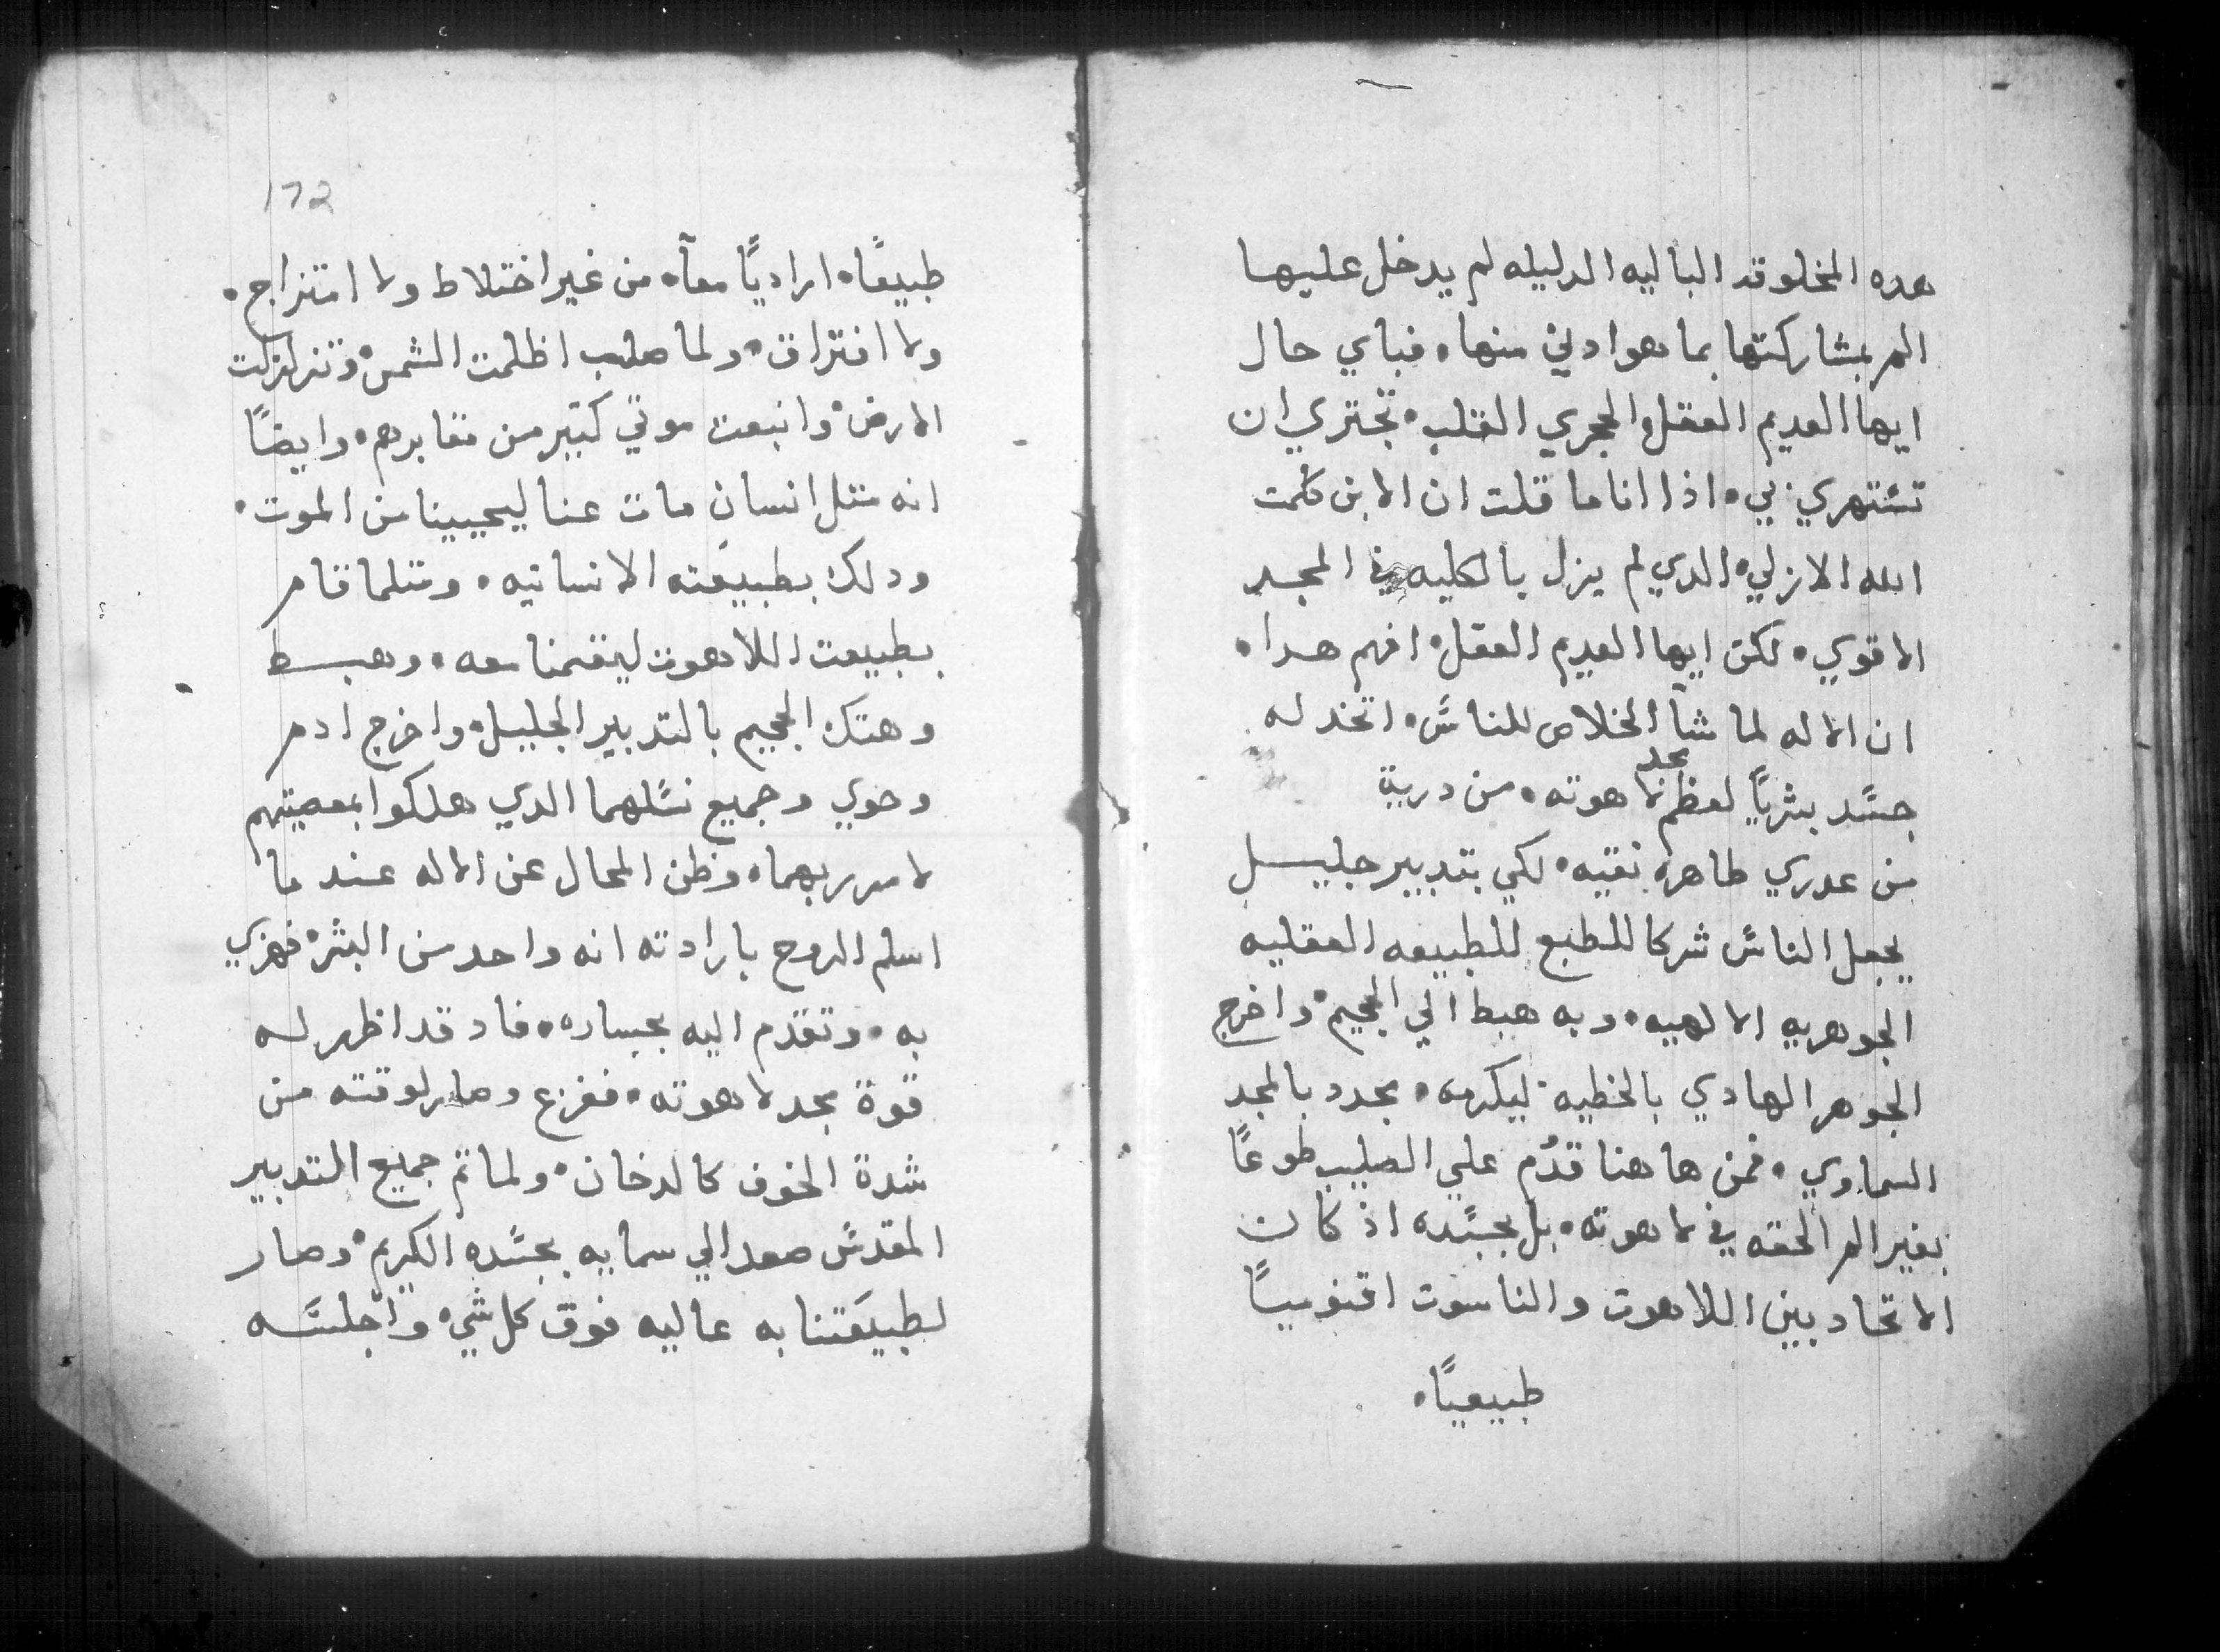 هده المخلوقه الباليه الدليله لم يدخل عليها
الم بمشاركتها بما هو ادني منها • فباي حال
ايها العديم العقل والحجري القلب • تجتري ان
تستهزي بي • اذا انا ما قلت ان الابن كلمت
الله الازلي • الدي لم يزل بالكليه في المجد
الاقوي • لكن ايها العديم العقل • افهم هدا •
ان الاله لما شآ الخلاص للناس • اتخد له
جسد بشريًا لعظم مجد لاهوته • من درية
من عدري طاهره نقيه • لكي بتدبير جليل
يجعل الناس شركا للطبع للطبيعه العقليه
الجوهريه الالهيه • وبه هبط الي الجحيم • واخرج
الجوهر الهادي بالخطيه • ليكرمه • بمجد بالمجد
السماوي • فمن هاهنا قدُم علي الصليب طوعًا
بغير الم الحقه في لاهوته • بل بجسده اذ كان
الاتحاد بين اللاهوت والناسوت اقنوميًا
طبيعيًا •
172
طبيعًا • اراديًا معآ • من غير اختلاط ولا امتزاج •
ولا افتراق • ولما صلب اظلمت الشمس • وتزلزلت
الارض • وانبعت موتي كتير من مقابرهم • وايضًا
انه متل انسان مات عنا ليحيينا من الموت •
ودلك بطبيعته الانسانيه • ومتلما قام
بطبيعت اللاهوت ليقمنا معه • وهبط
وهتك الجحيم بالتدبير الجليل • واخرج ادم
وحوي وجميع نسلهما الدي هلكوا بمعصيتهم
لامر ربهما • وظن المحال عن الاله عند ما
اسلم الروح بارادته انه واحد من البشر • فهزي
به • وتقدم اليه بجساره • فاد قد اظهر له
قوة مجد لاهوته • ففزع وصار لوقته من
شدة الخوف كالدخان • ولما تم جميع التدبير
المقدس صعد الي سمايه بجسده الكريم • وصار
لطبيعتنا به عاليه فوق كل شي • واجلسه